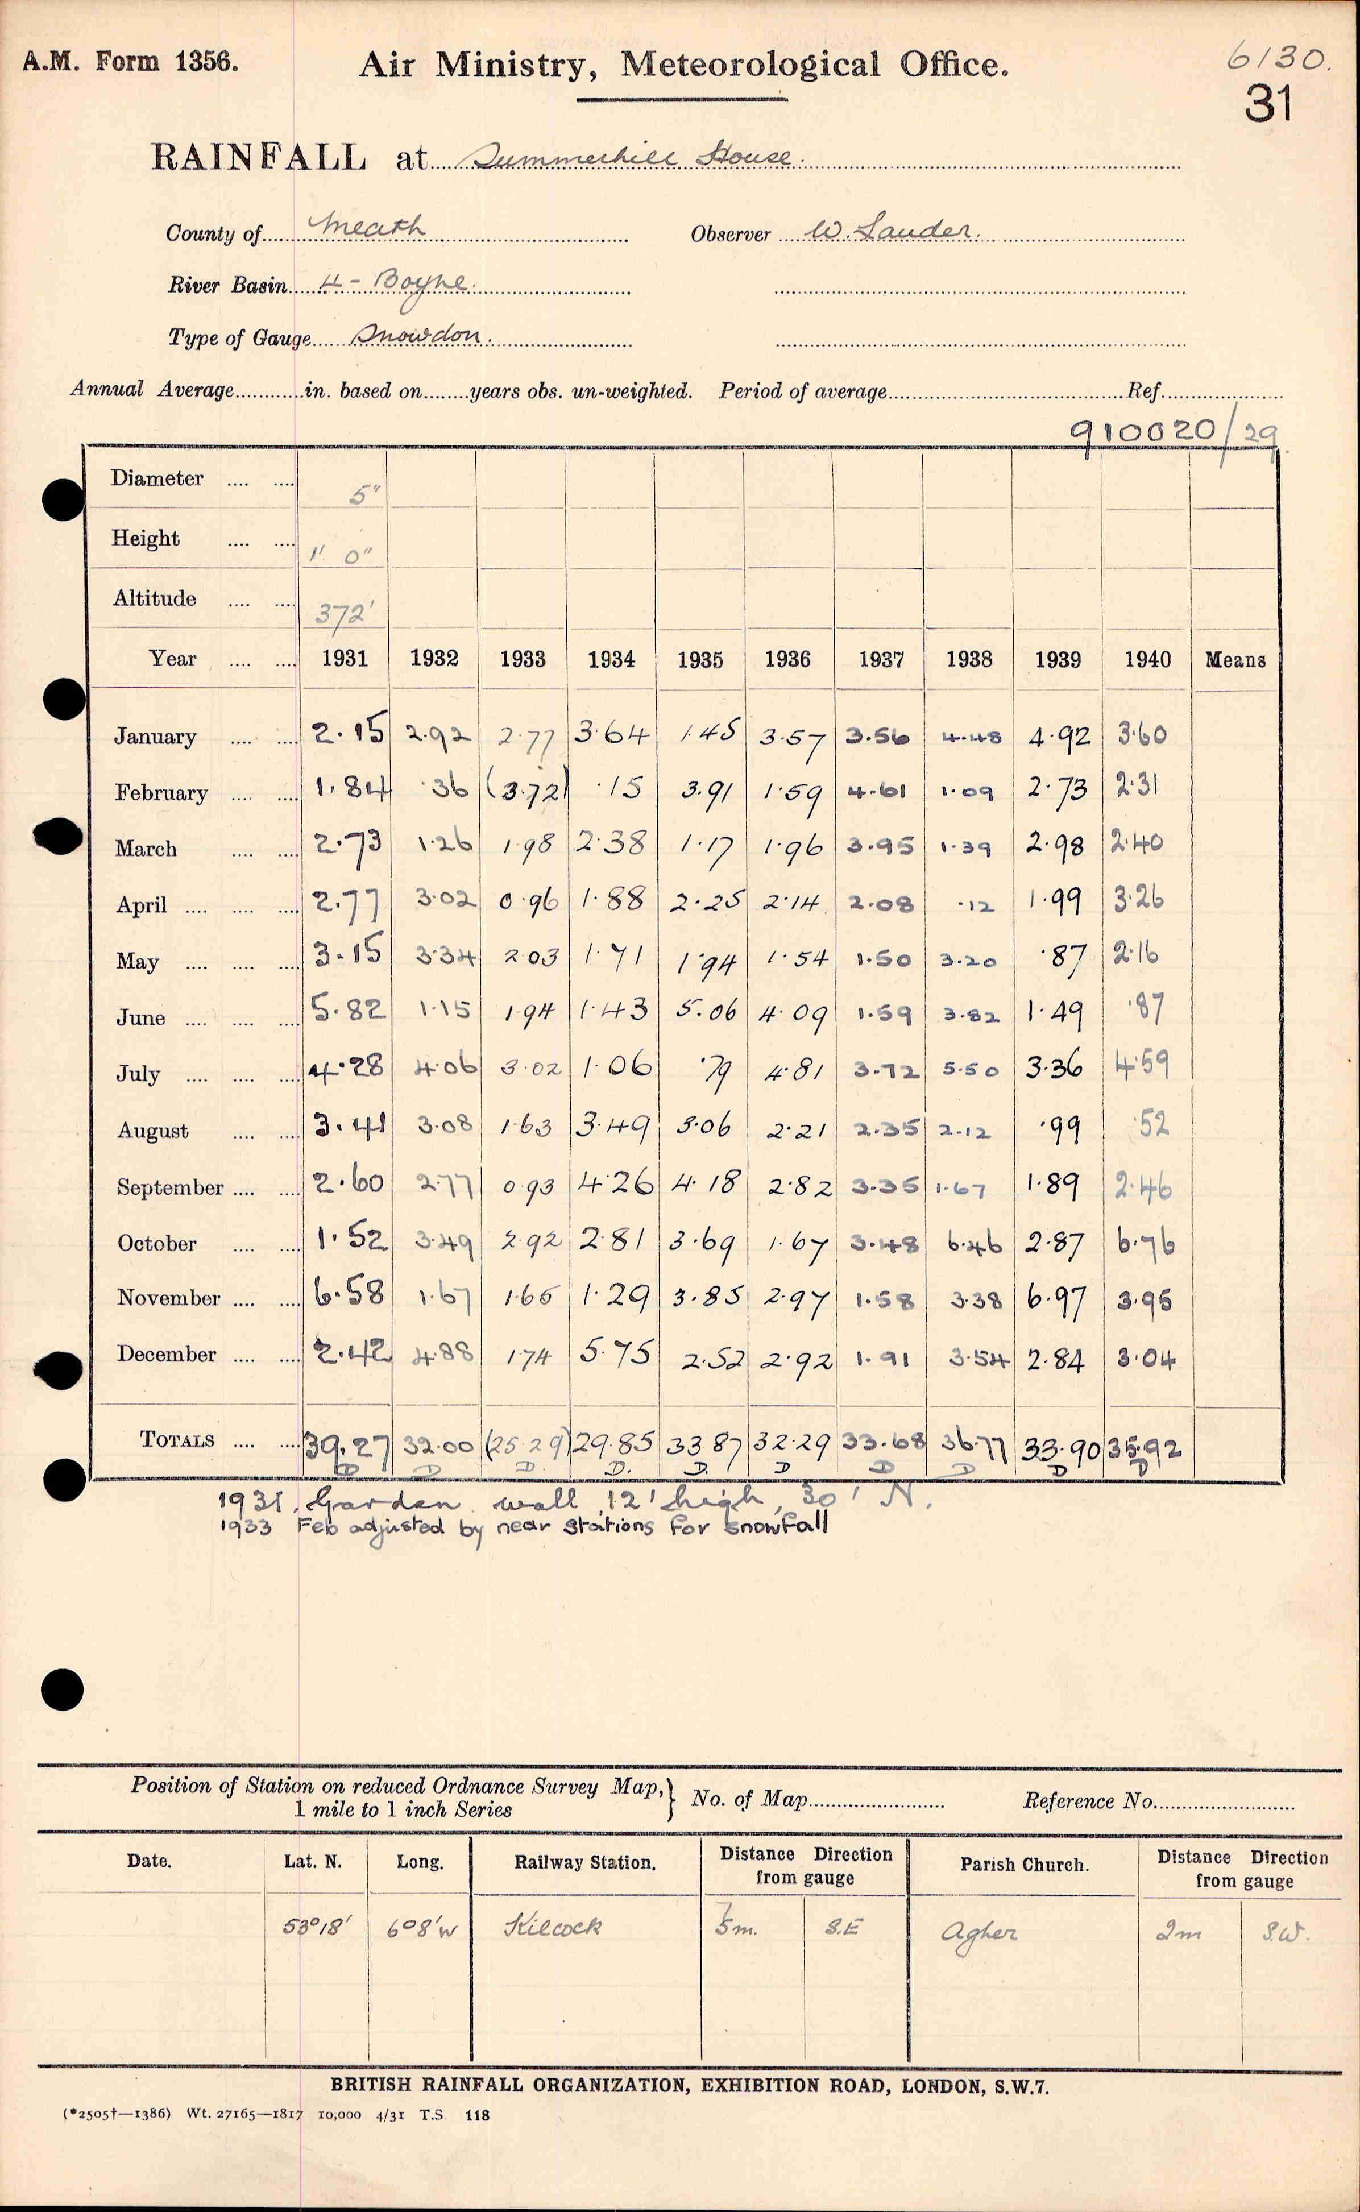 A.M. Form 1356.
Air Ministry, Meteorological Office.
6130.
31
RAINFALL at Summerhill House.
County of Meath Observer W. Lauder.
River Basin 4 - Boyne.
Type of Gauge Snowdon.
Annual Average in. based on years obs. un-weighted. Period of average Ref.
910020/29
Diameter 5"
Height 1' 0"
Altitude 372'
Year 1931 1932 1933 1934 1935 1936 1937 1938 1939 1940 Means
January 2.15 2.92 2.77 3.64 1.45 3.57 3.56 4.48 4.92 3.60
February 1.84 .36 (3.72) .15 3.91 1.59 4.61 1.09 2.73 2.31
March 2.73 1.26 1.98 2.38 1.17 1.96 3.95 1.39 2.98 2.40
April 2.77 3.02 0.96 1.88 2.25 2.14 2.08 .12 1.99 3.26
May 3.15 3.34 2.03 1.71 1.94 1.54 1.50 3.20 .87 2.16
June 5.82 1.15 1.94 1.43 5.06 4.09 1.59 3.82 1.49 .87
July 4.28 4.06 3.02 1.06 .79 4.81 3.72 5.50 3.36 4.59
August 3.41 3.08 1.63 3.49 3.06 2.21 2.35 2.12 .99 .52
September 2.60 2.77 0.93 4.26 4.18 2.82 3.35 1.67 1.89 2.46
October 1.52 3.49 2.92 2.81 3.69 1.67 3.48 6.46 2.87 6.76
November 6.58 1.67 1.65 1.29 3.85 2.97 1.58 3.38 6.97 3.95
December 2.42 4.88 1.74 5.75 2.52 2.92 1.91 3.54 2.84 3.04
TOTALS 39.27 32.00 (25.29) 29.85 33.87 32.29 33.68 36.77 33.90 35.92
D D D. D. D. D D D D D
1931. Garden wall 12' high, 30' N.
1933 Feb adjusted by near stations for snowfall
Position of Station on reduced Ordnance Survey Map,
1 mile to 1 inch Series } No. of Map Reference No.
Date. Lat. N. Long. Railway Station. Distance Direction from gauge Parish Church. Distance Direction from gauge
53°18' 6°8'W Kilcock 5m. S.E Agher 2m S.W.
BRITISH RAINFALL ORGANIZATION, EXHIBITION ROAD, LONDON, S.W.7.
(*2505†—1386) Wt. 27165—1817 10,000 4/31 T.S 118